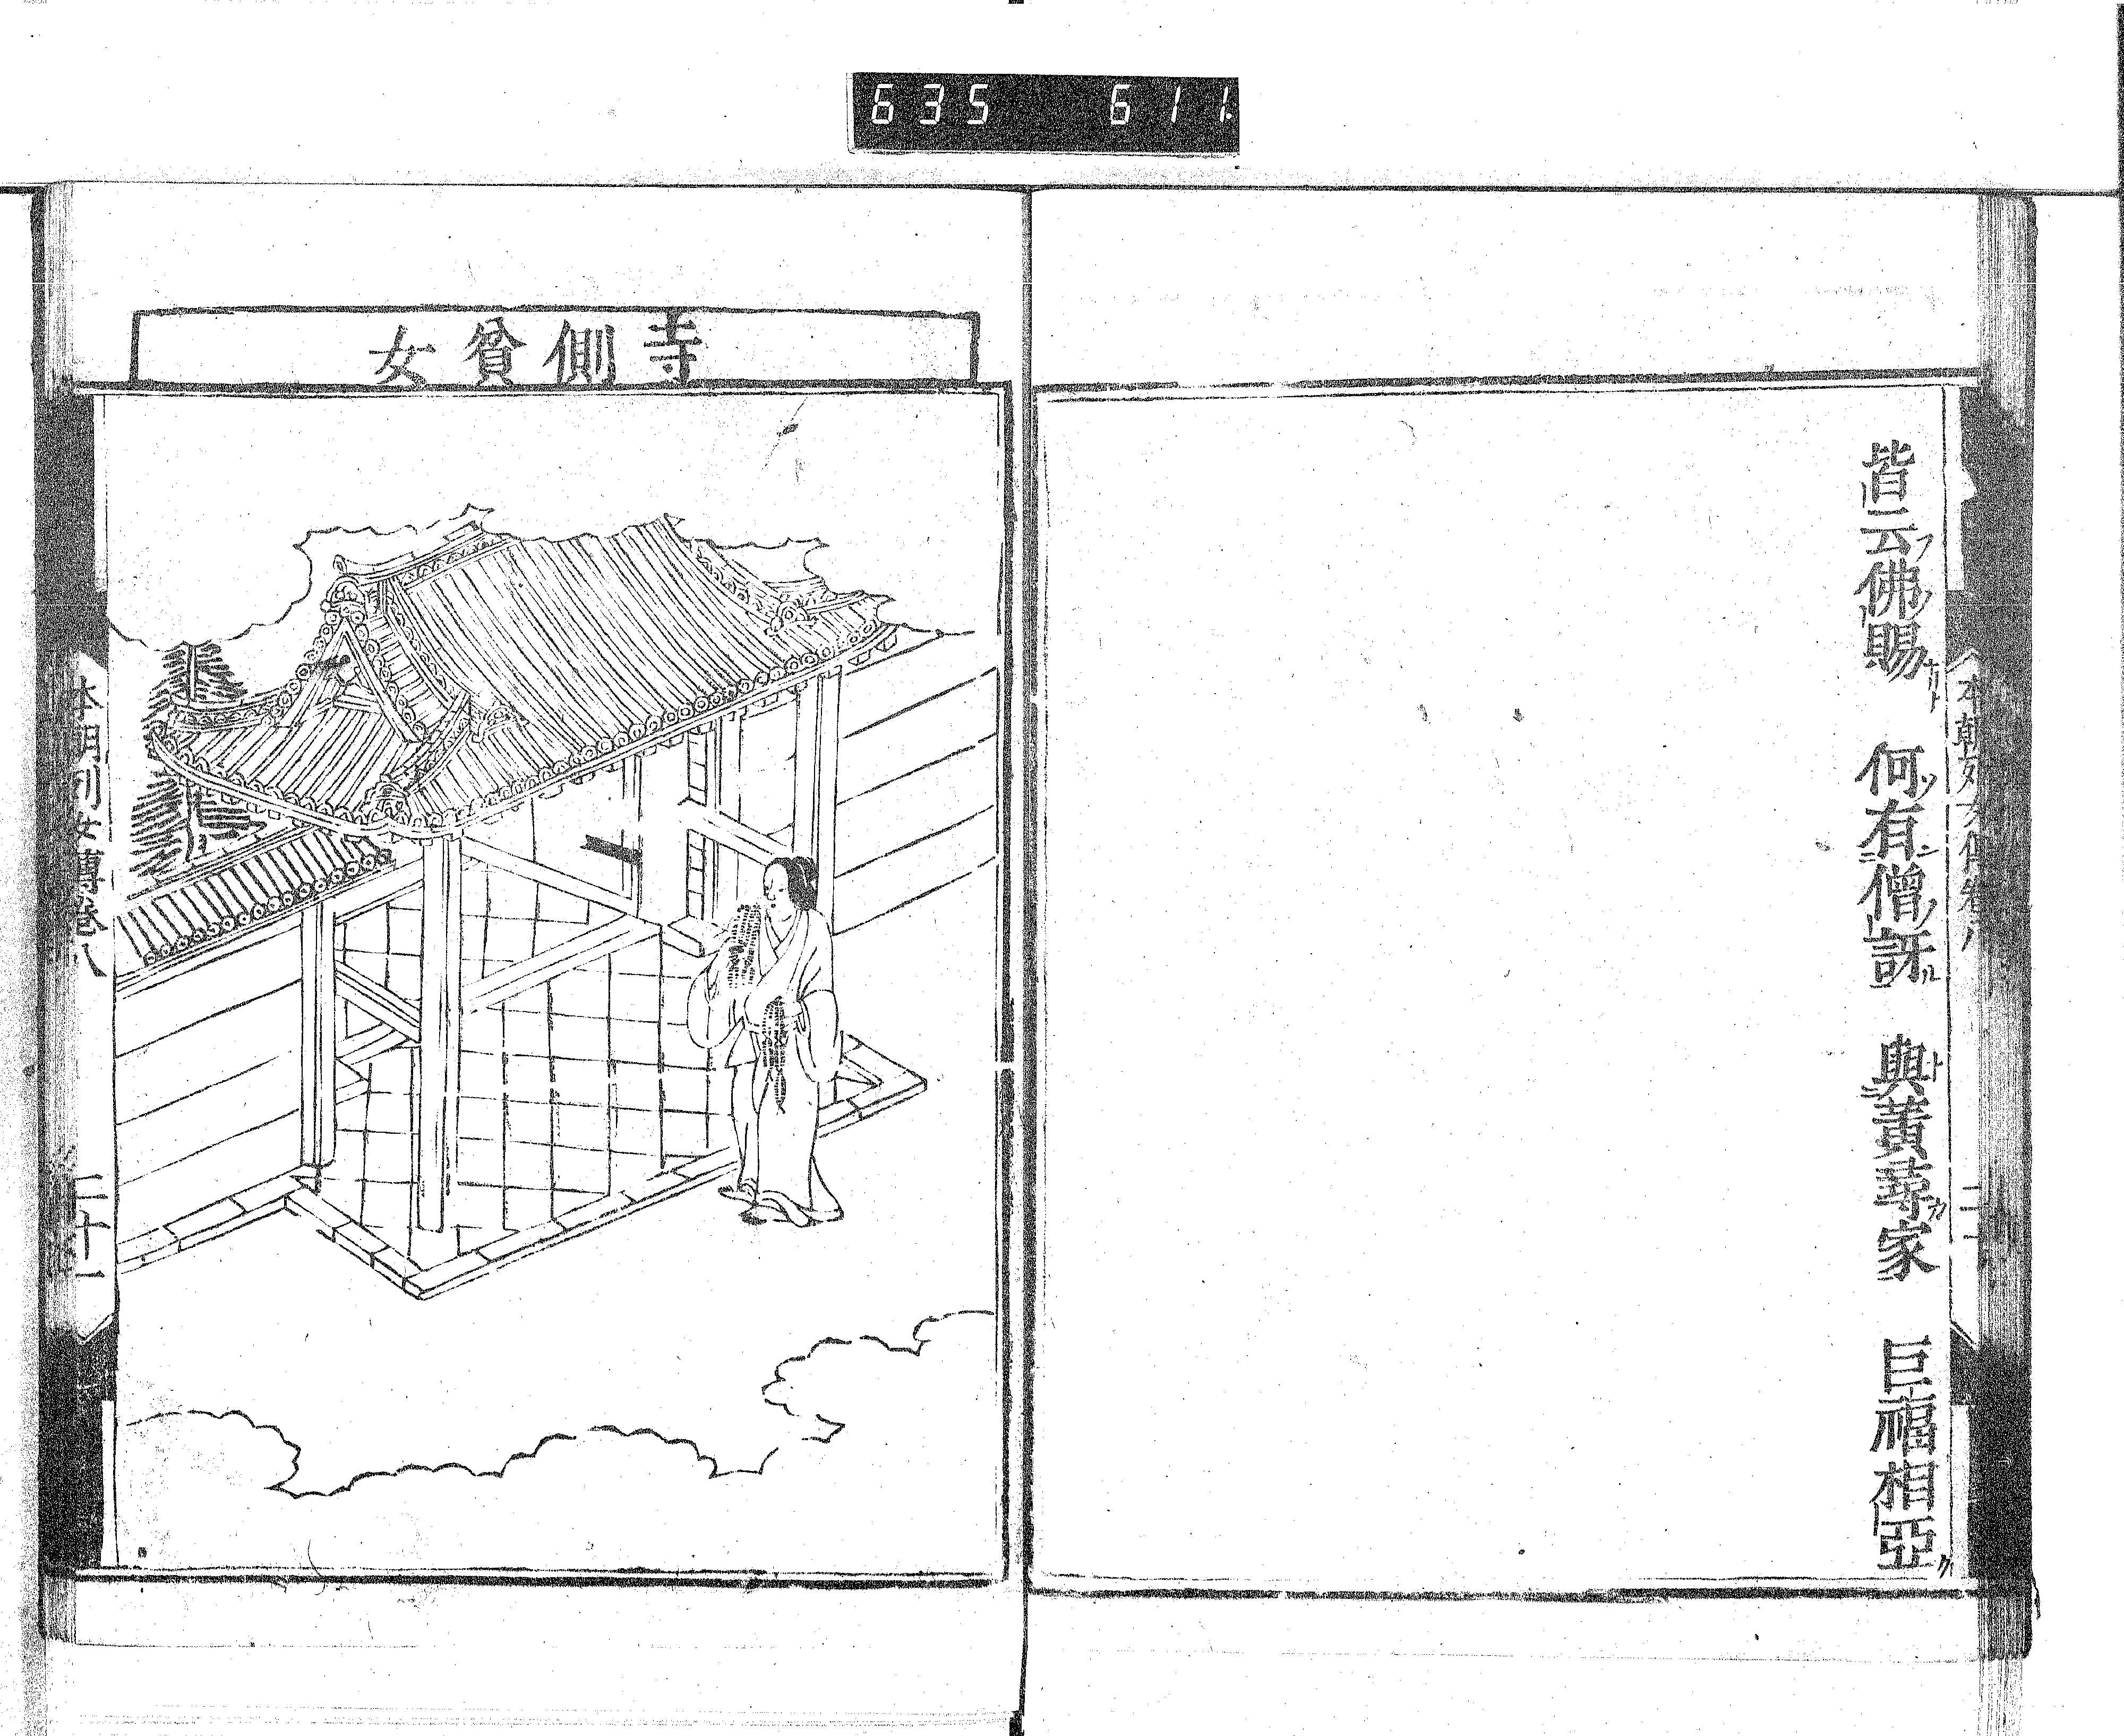 635 611
皆云佛賜 何有僧訝 與蕢尋家 巨福相亞
本朝列女傳卷八
二十
寺側貧女
本朝列女傳卷八
二十一